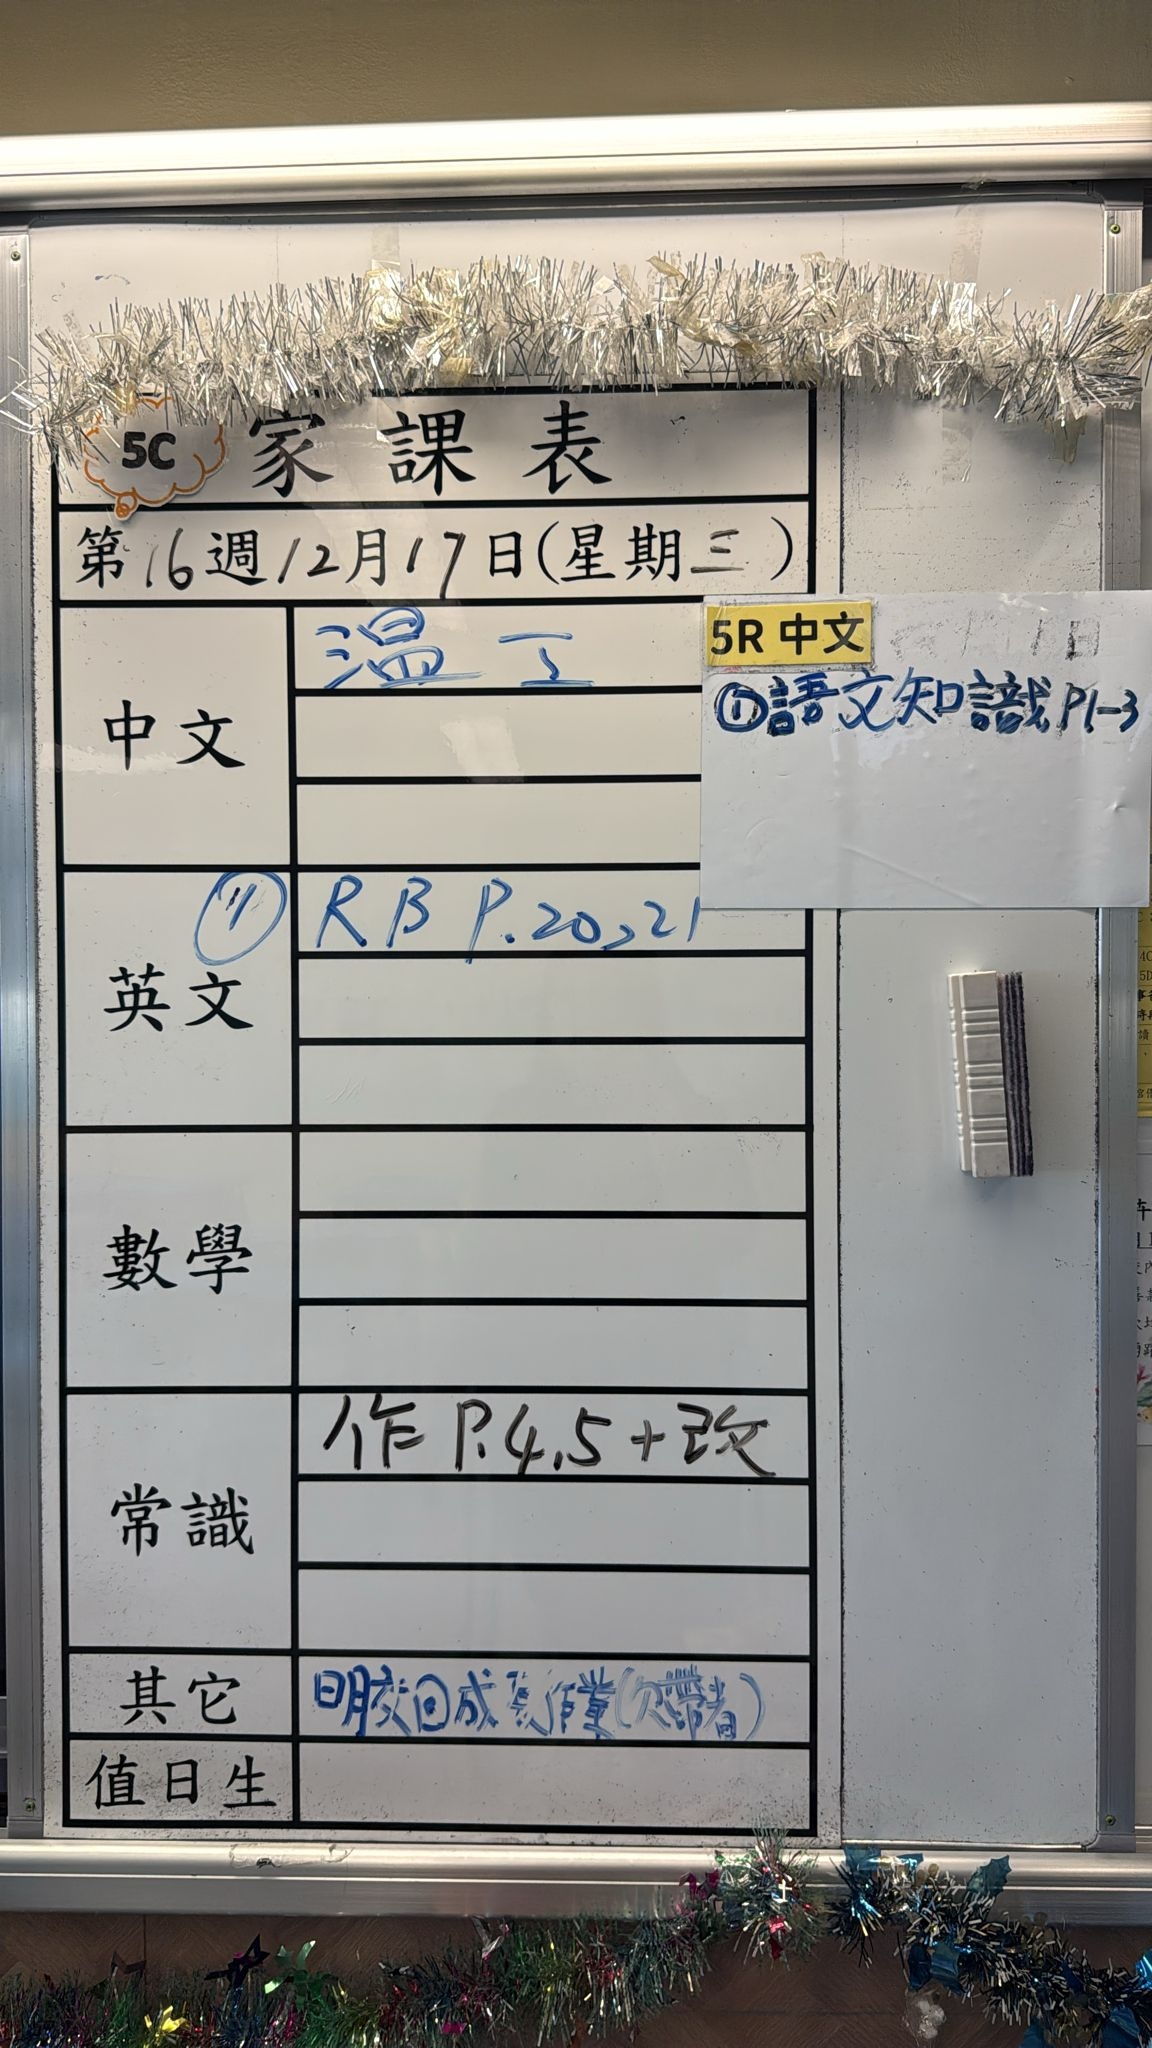 5C 家課表
第16週12月17日(星期三)
中文
溫工
5R 中文
①語文知識P1-3
英文
① RB P.20,21
數學
常識
作P.4,5+改
其它
明交回成長作業(欠帶者)
值日生